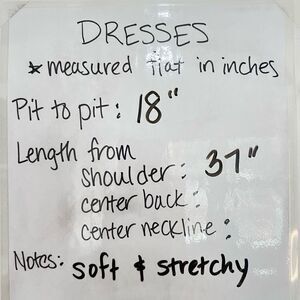 DRESSES
* measured flat in inches
Pit to pit: 18"
Length from
shoulder: 37"
center back:
center neckline:
Notes: soft & stretchy